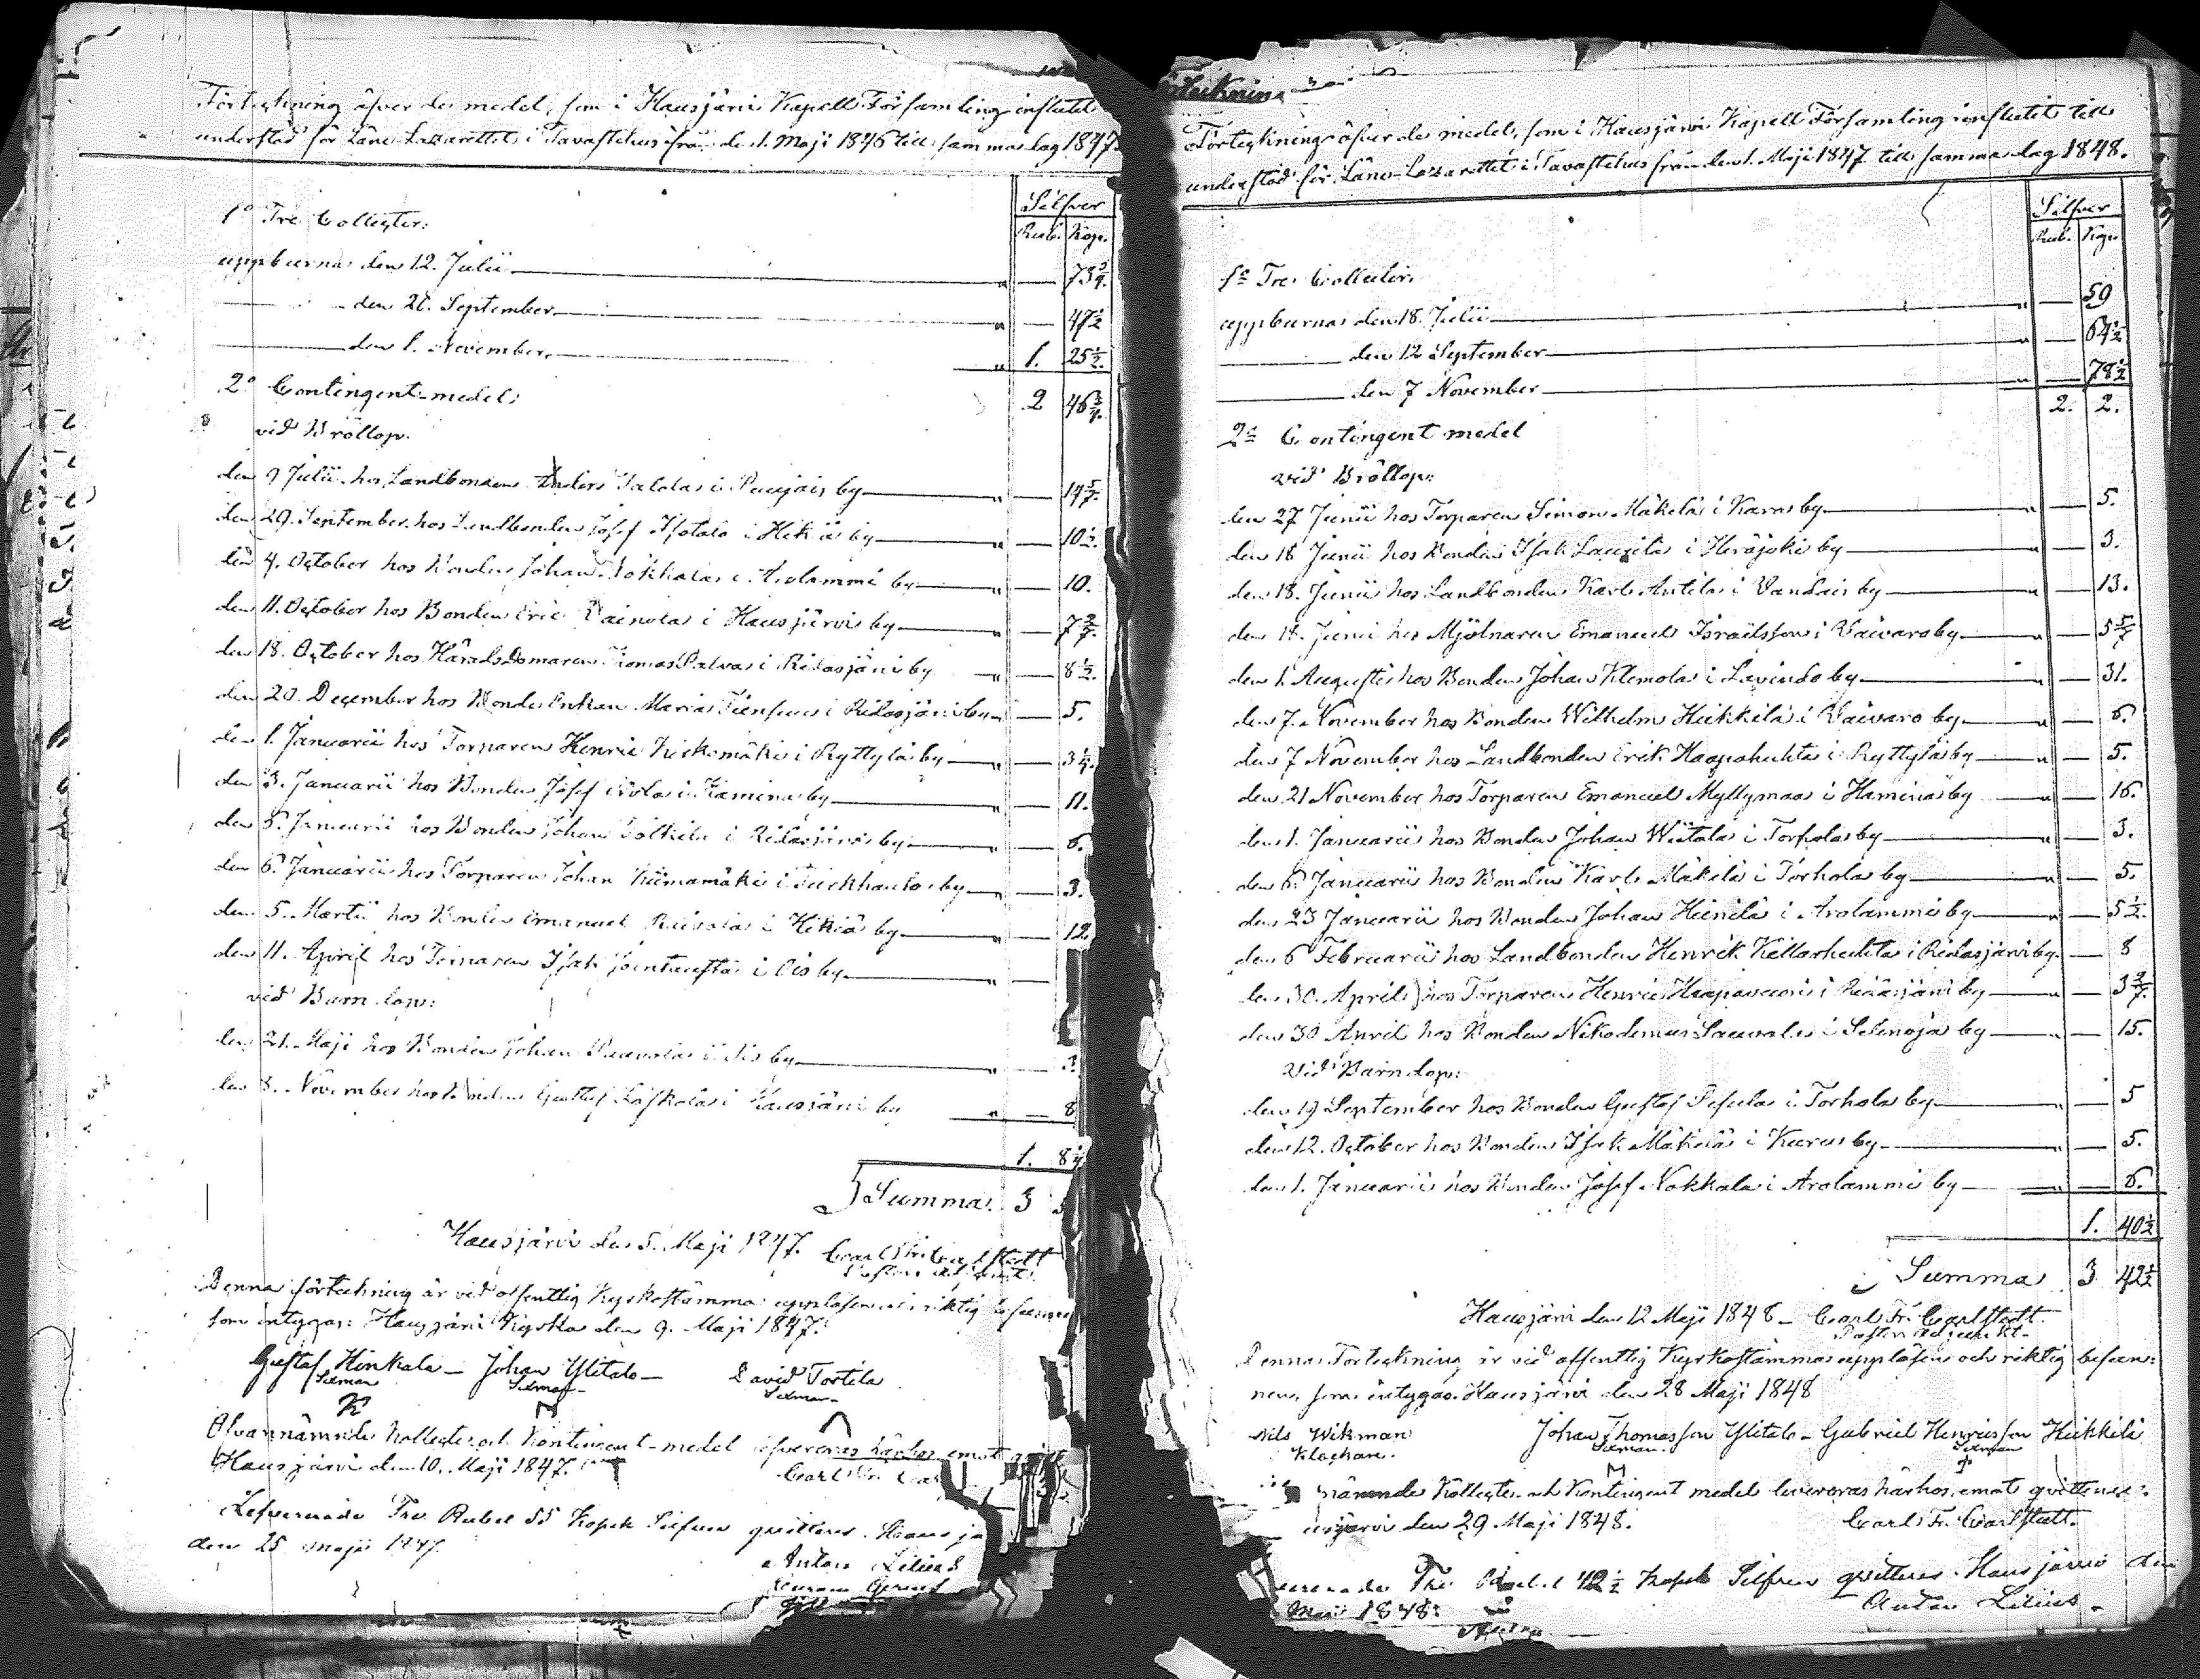 Förtekning öfver de medel, som i Hausjärvi Kapell Församling influtit
understöd för Läns-Lazarettet i Tavastehus från den 1. Maji 1846 till samma dag 1847.
Silfver
Rub. Kop.
1o Tre Collecter:
uppburna den 12. Julii — 73 5/7.
den 20. September — 47 1/2
den 1. November — 1. 25 1/2.
2 46 5/7.
2o Contingent-medel:
vid Bröllop.
den 9 Julii hos Landbonden Anders i by — 14 5/7.
den 29. September hos Landbonden Josef Isotalo i Hikiä by — 10 1/2.
den 4. October hos Bonden Johan Nokkala i Arolammi by — 10.
den 11. October hos Bonden Eric Vainola i Hausjärvi by — 7 3/7.
den 18. October hos Häradsdomaren Thomas i Ridasjärvi by — 8 1/2.
den 20. December hos Bonde Enkan Maria i Ridasjärvi by — 5.
den 1. Januarii hos Torparen Henric i Ryttylä by — 3 1/7.
den 3. Januarii hos Bonden Josef i by — 11.
den 6. Januarii hos Bonden Johan i Ridasjärvi by — 6.
den 6. Januarii hos Torparen Johan Kiimamäki i by — 3.
den 5. Martii hos Bonden Emanuel i Hikiä by — 12
den 11. April hos Torparen Isak i Ois by —
vid Barndop:
den 21. Maji hos Bonden Johan i by — 3
den 8. November hos Bonden Gustaf i Hausjärvi by — 8
1. 8
Summa 3
Hausjärvi den 5. Maji 1847. Carl Fr. Carlstedt
Pastors adjunkt
Denna förtekning är vid offentlig Kyrkostämma uppläsen och riktig befunnen
som intygas: Hausjärvi Kyrka den 9. Maji 1847.
Gustaf Hinkala — Johan Ylitalo — David Tortila
Sexman Sexman Sexman
Ofvannämnde Kollecte och Kontingent-medel härhos emot
Hausjärvi den 10. Maji 1847. Carl Fr.
Lefvererade Tre Rubel 55 Kopek Silfver qvitteras. Hausjä
den 25 Maji 1847.
Anton Lilius
Förtekning öfver de medel, som i Hausjärvi Kapell Församling influtit till
understöd för Läns-Lazarettet i Tavastehus från den 1. Maji 1847 till samma dag 1848.
Silfver
Rub. Kop.
1o Tre Collecter:
uppburna den 18. Julii — 59
den 12 September — 64 1/2
den 7 November — 78 1/2
2. 2.
2o Contingent medel
vid Bröllop:
den 27 Junii hos Torparen Simon Mäkelä i Karas by — 5.
den 18 Junii hos Bonden Isak Laurila i Heräjoki by — 3.
den 18. Junii hos Landbonden Karl Antila i Vandais by — 13.
den 18. Junii hos Mjölnaren Emanuel Israelsson i Vaivaro by — 5 5/7
den 1. Augusti hos Bonden Johan Klemola i Lavindo by — 31.
den 7. November hos Bonden Wilhelm Heikkilä i Vaivaro by — 6.
den 7 November hos Landbonden Erik Haapahuhta i Ryttylä by — 5.
den 21 November hos Torparen Emanuel Myllymaa i Haminas by — 16.
den 1. Januarii hos Bonden Johan Wiitala i Torhola by — 3.
den 6. Januarii hos Bonden Karl Mäkelä i Torhola by — 5.
den 23 Januarii hos Bonden Johan Heinilä i Arolammi by — 5 1/2.
den 6 Februarii hos Landbonden Henrik Kellarhuhta i Ridasjärvi by — 8
den 30. April hos Torparen Henric Haapavuori i Ridasjärvi by — 3 2/7.
den 30 April hos Bonden Nikodemus Sauvala i Selenoja by — 15.
vid Barndop:
den 19 September hos Bonden Gustaf i Torhola by — 5
den 12. October hos Bonden Isak Mäkelä i Kurus by — 5.
den 1. Januarii hos Bonden Josef Nokkala i Arolammi by — 6.
1. 40 1/2
Summa 3 42 1/2
Hausjärvi den 12 Maji 1848 — Carl Fr. Carlstedt.
Pastors adjunkt.
Denna Förtekning är vid offentlig Kyrkostämma uppläsen och riktig befun:
nen, som intygas. Hausjärvi den 28 Maji 1848
Nils Wikman Johan Thomasson Ylitalo — Gabriel Henricsson Heikkilä
Klockare. Sexman. Sexman
nämnde Kollecte och Kontingent medel levereras härhos, emot qvittens.
usjärvi den 29 Maji 1848. Carl Fr. Carlstedt.
Tre Rubel 42 1/2 Kopek Silfver qvitteras. Hausjärvi den
Maji 1848. Anton Lilius